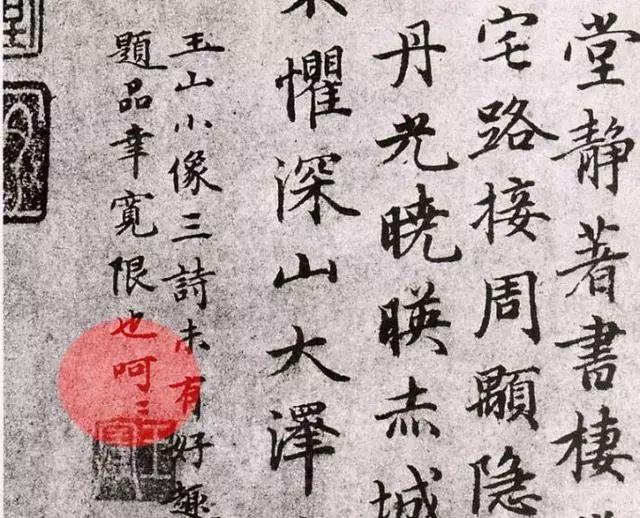 堂靜著書棲
宅路接周顒隐
丹光曉暎赤城
懼深山大澤
玉山小像三詩未有好趣
題品幸寬限也呵〻